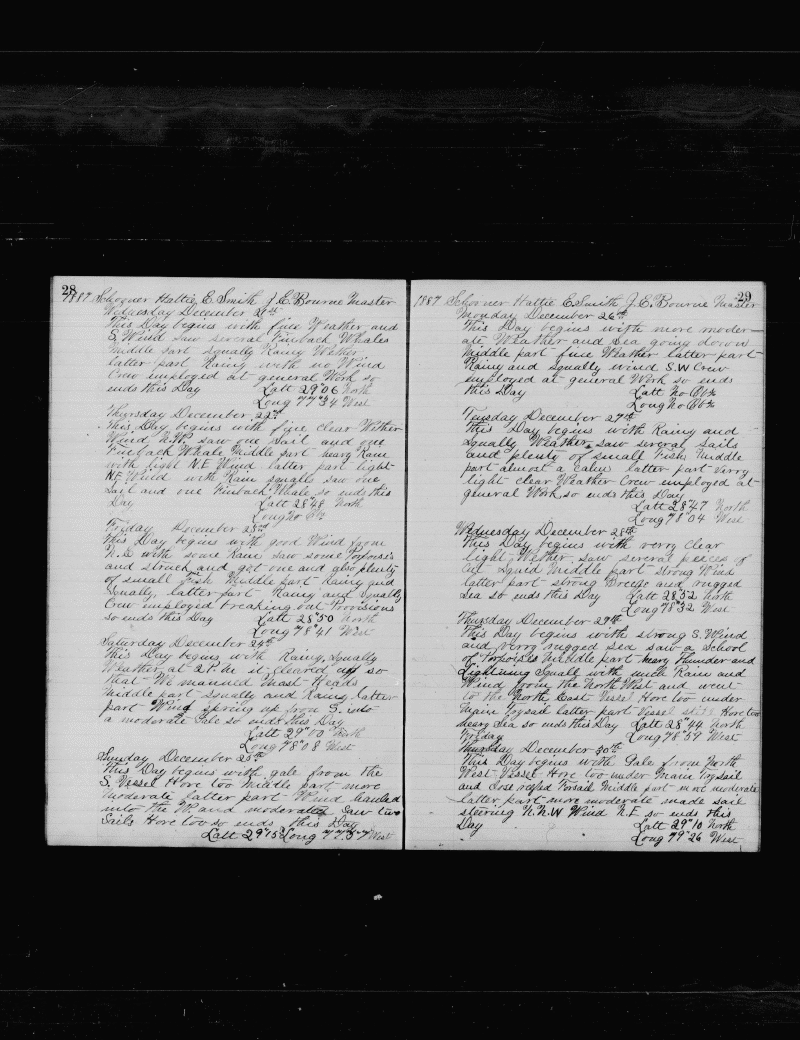 28
1887 Schooner Hattie E. Smith J. E. Bourne Master
Wednesday December 21st
This Day begins with fine Weather and
S. Wind saw several Finback Whales
Middle part squally Rainy Wether
latter part Rainy with no Wind
Crew employed at general Work so
ends this Day Latt 29°06 North
Long 77°34 West
Thursday December 22nd
This Day begins with fine clear Wether
Wind N.W. saw one Sail and one
Finback Whale Middle part heavy Rain
with light N.E Wind latter part light
N.E Wind with Rain squalls saw one
Sail and one Finback Whale so ends this
Day Latt 28°48 North
Long no Ob
Friday December 23rd
This Day begins with good Wind from
N.E with some Rain saw some Porpoises
and struck and got one and also plenty
of small Fish Middle part Rainy and
Squally, latter part Rainy and Squally
Crew employed breaking out Provisions
so ends this Day Latt 28°50 North
Long 78°41 West
Saturday December 24th
This Day begins with Rainy, Squally
Weather at 2 P.M it cleared up so
that We manned Mast Heads
Middle part squally and Rainy latter
part Wind spring up from S. into
a moderate Gale so ends this Day
Latt 29°00 North
Long 78°08 West
Sunday December 25th
This Day begins with gale from the
S. Vessel Hove too Middle part more
moderate latter part Wind hauled
into the W. and moderated Saw two
Sails Hove too so ends this Day
Latt 29°15 Long 77°57 West
29
1887 Schooner Hattie E. Smith J. E. Bourne Master
Monday December 26th
This Day begins with more moder-
ate Weather and Sea going down
Middle part fine Weather latter part
Rainy and squally wind S.W Crew
employed at general Work so ends
this Day Latt No Obs
Long No Obs
Tuesday December 27th
This Day begins with Rainy and
Squally Weather, saw several sails
and plenty of small Fish Middle
part almost a calm latter part verry
light clear Weather Crew employed at
general Work, so ends this Day
Latt 28°47 North
Long 78°04 West
Wednesday December 28th
This Day begins with verry clear
light Wether, saw several peaces of
cut Squid Middle part strong Wind
latter part strong Breeze and rugged
Sea so ends this Day Latt 28°52 North
Long 78°32 West
Thursday December 29th
This Day begins with strong S. Wind
and verry rugged Sea saw a School
of Porpoises Middle part heavy thunder and
Lightning Squall with much Rain and
Wind from the North West and went
to the North East Vessel Hove too under
main Trysail latter part Vessel still Hove too
heavy Sea so ends this Day Latt 28°44 North
Friday Long 78°59 West
Thursday December 30th
This Day begins with Gale from North
West Vessel Hove too under Main Trysail
and Close reefed Forsail Middle part most moderate
latter part more moderate made sail
stering N.N.W Wind N.E so ends this
Day Latt 29°10 North
Long 79°26 West